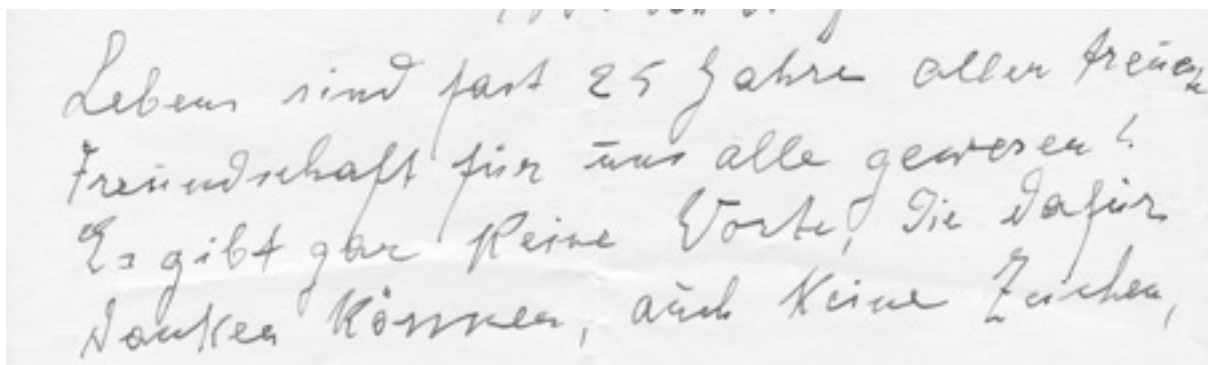 Lebens sind fast 25 Jahre aller treuer
Freundschaft für uns alle gewesen!
Es gibt gar keine Worte, die dafür
danken können, auch keine Zeichen,